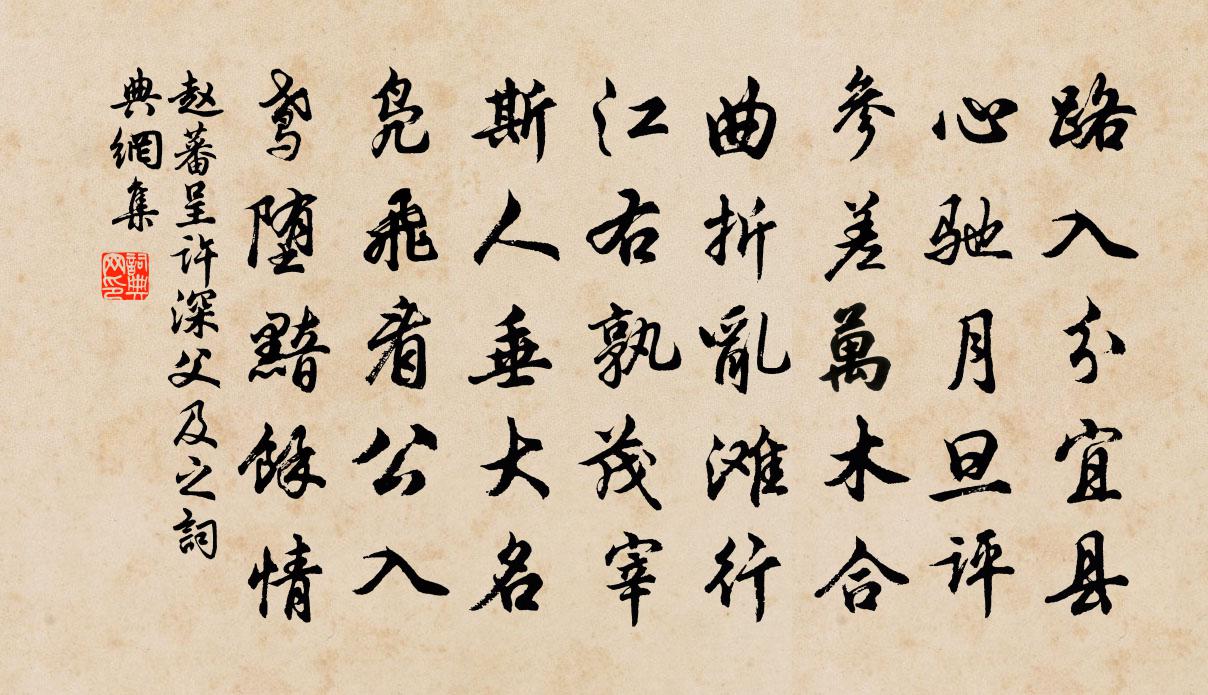 路入分宜县
心驰月旦评
参差萬木合
曲折亂滩行
江右孰茂宰
斯人垂大名
凫飛看公入
鸢堕黯餘情
赵蕃呈许深父及之詞
典網集
詞典
网印